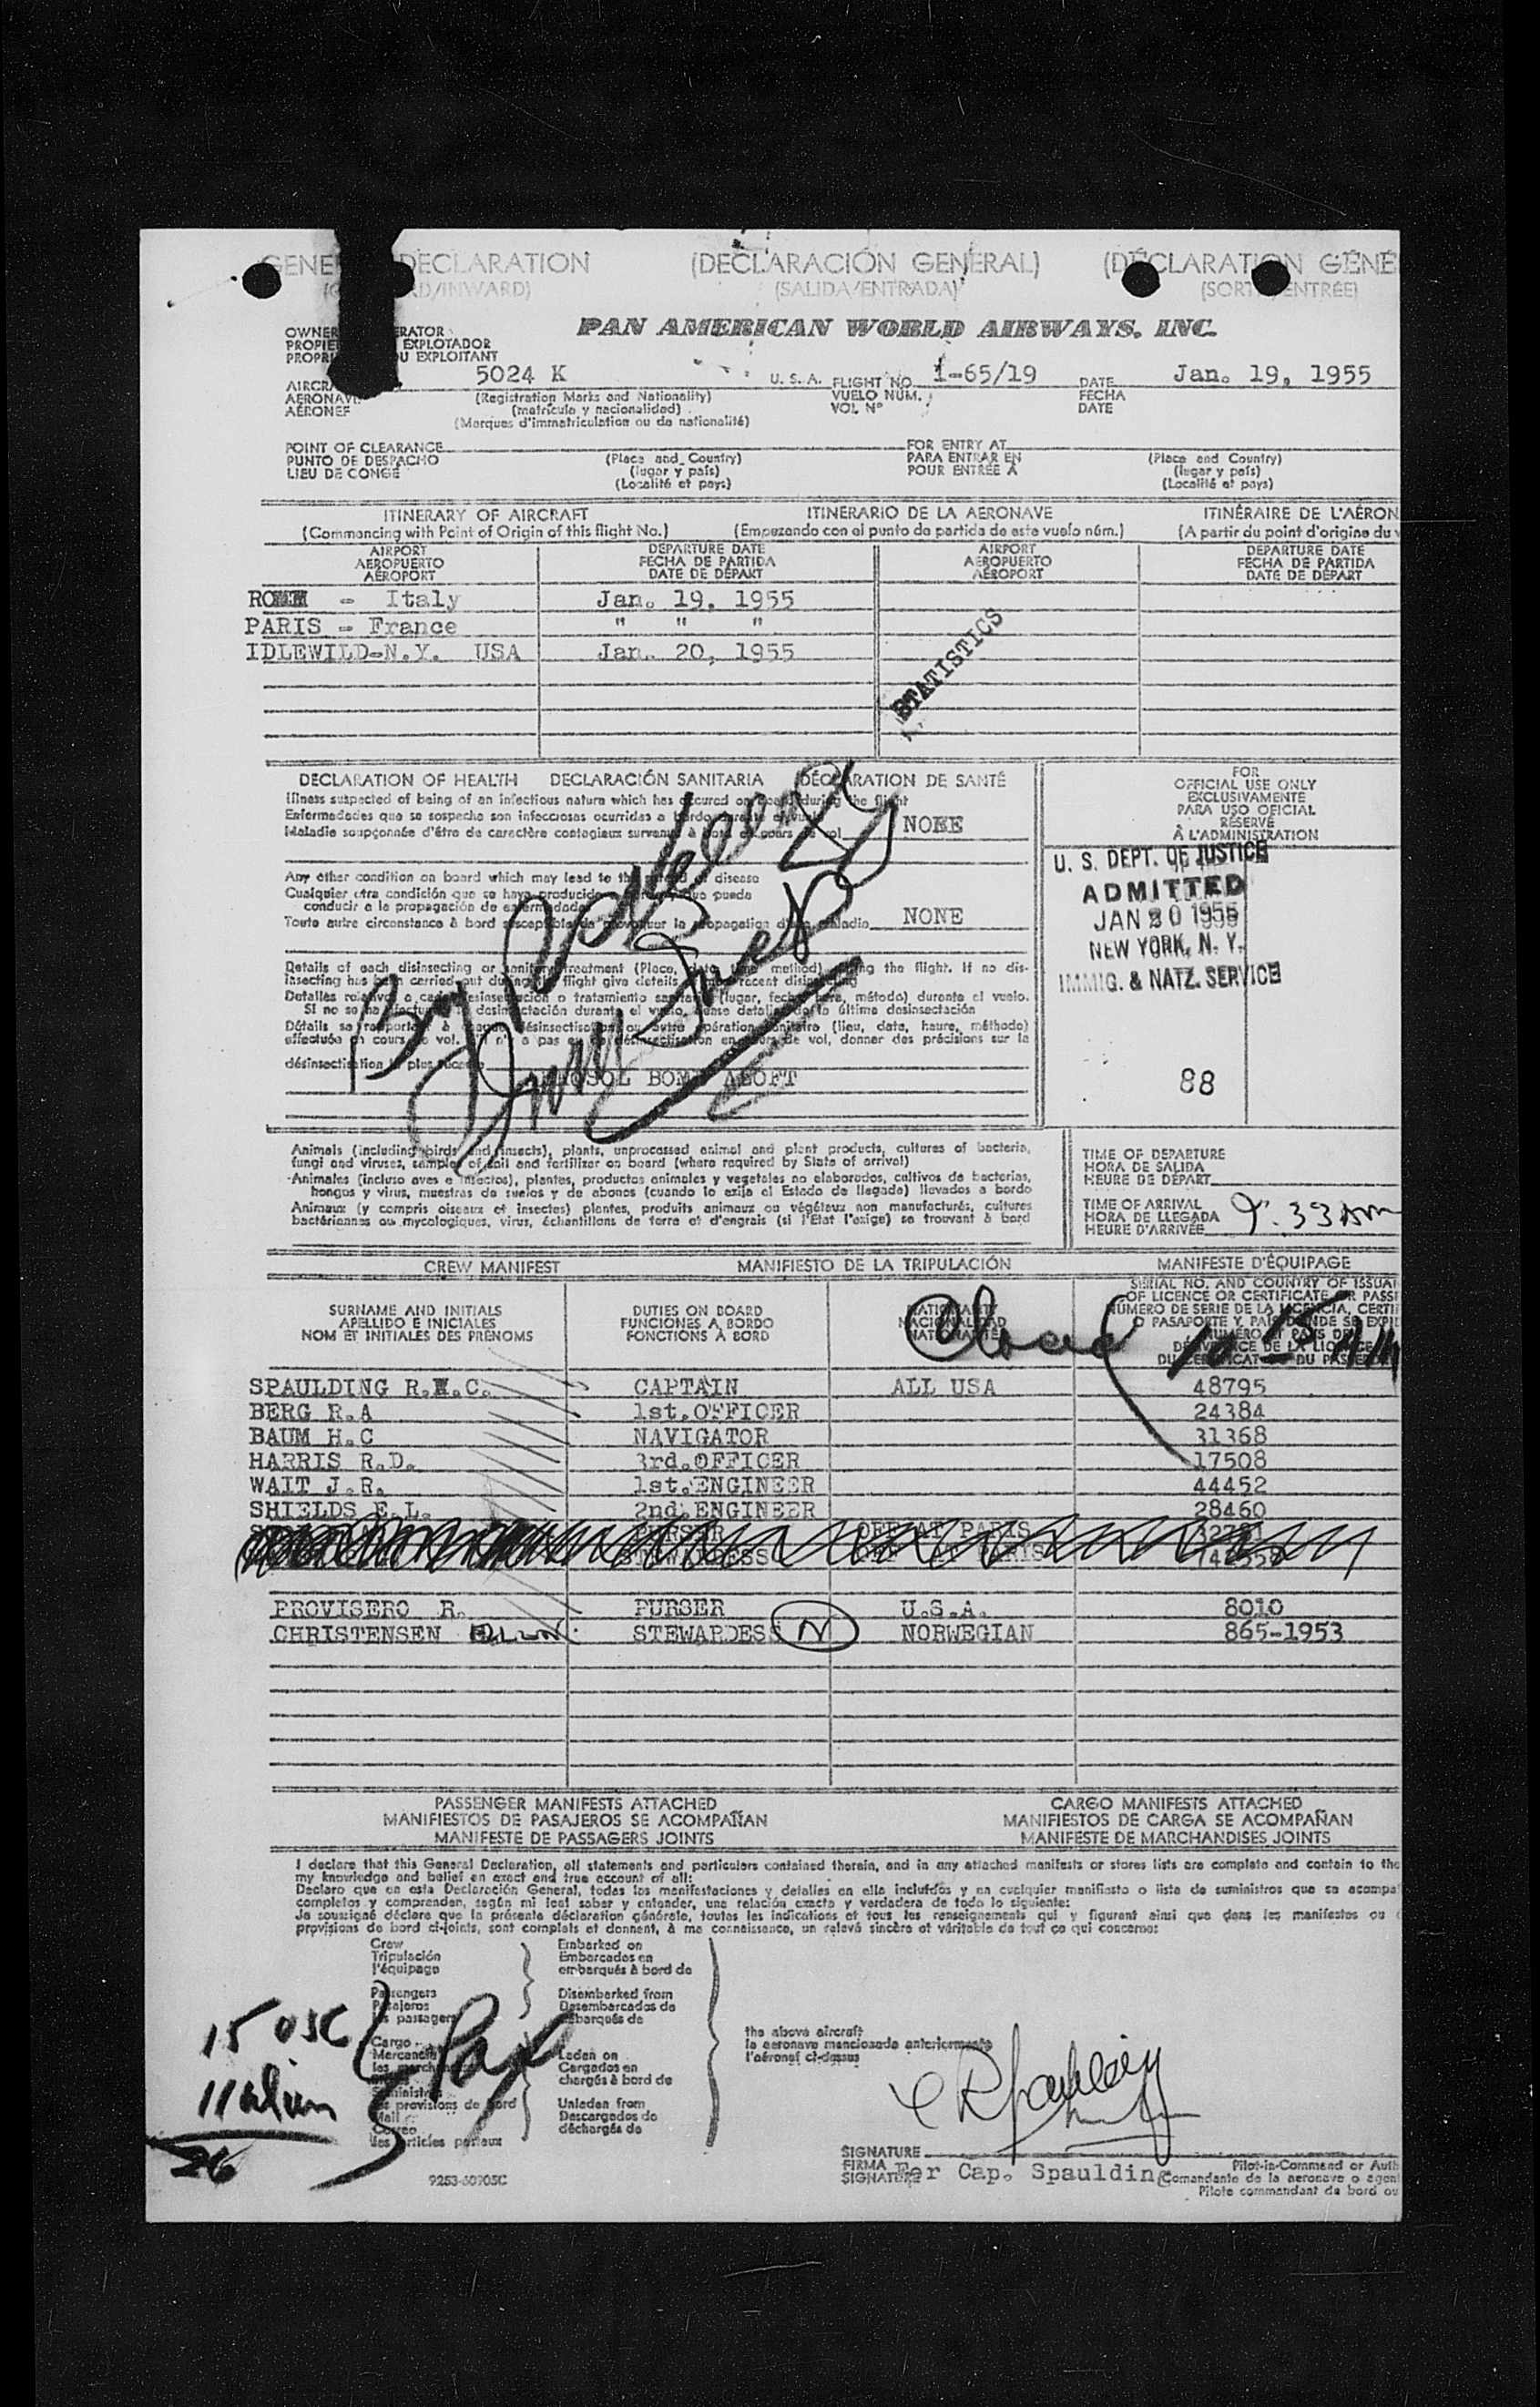 DECLARATION (DECLARACIÓN GENERAL) (DÉCLARATION GÉNÉ
RD/INWARD) (SALIDA/ENTRADA) (SORT ENTRÉE)
PAN AMERICAN WORLD AIRWAYS, INC.
OWNER ERATOR
PROPIE EXPLOTADOR
PROPRI OU EXPLOITANT
5024 K U. S. A. FLIGHT NO. 1-65/19 DATE Jan. 19, 1955
AIRCRA (Registration Marks and Nationality) VUELO NUM. FECHA
AERONAVE (matrícula y nacionalidad) VOL Nº DATE
AÉRONEF (Marques d'immatriculation ou de nationalité)
POINT OF CLEARANCE FOR ENTRY AT
PUNTO DE DESPACHO (Place and Country) PARA ENTRAR EN (Place and Country)
LIEU DE CONGÉ (lugar y país) POUR ENTRÉE À (lugar y país)
(Localité et pays) (Localité et pays)
ITINERARY OF AIRCRAFT ITINERARIO DE LA AERONAVE ITINÉRAIRE DE L'AÉRON
(Commencing with Point of Origin of this flight No.) (Empezando con el punto de partida de este vuelo núm.) (A partir du point d'origine du v
AIRPORT DEPARTURE DATE AIRPORT DEPARTURE DATE
AEROPUERTO FECHA DE PARTIDA AEROPUERTO FECHA DE PARTIDA
AÉROPORT DATE DE DÉPART AÉROPORT DATE DE DÉPART
Italy Jan. 19, 1955
PARIS - France " " "
IDLEWILD-N.Y. USA Jan. 20, 1955
STATISTICS
DECLARATION OF HEALTH DECLARACIÓN SANITARIA DÉCLARATION DE SANTÉ
Illness suspected of being of an infectious nature which has occured on board during the flight
Enfermedades que se sospecha son infecciosas ocurridas a bordo durante el vuelo
Maladie soupçonnée d'être de caractère contagieux survenue à bord en cours de vol NONE
Any other condition on board which may lead to the spread of disease
Cualquier otra condición que se haya producido a bordo y que pueda
conducir a la propagación de enfermedades
Toute autre circonstance à bord susceptible de provoquer la propagation d'une maladie NONE
Details of each disinsecting or sanitary treatment (Place, date, time, method) during the flight. If no dis-
insecting has been carried out during the flight give details of most recent disinsecting
Detalles relativos a cada desinsectación o tratamiento sanitario (lugar, fecha, hora, método) durante el vuelo.
SI no se ha efectuado la desinsectación durante el vuelo, dense detalles de la última desinsectación
Détails se rapportant à chaque désinsectisation ou autre opération sanitaire (lieu, date, heure, méthode)
effectuée en cours de vol. S'il n'y a pas eu de désinsectisation en cours de vol, donner des précisions sur la
désinsectisation la plus récente
AEROSOL BOMB ALOFT
FOR
OFFICIAL USE ONLY
EXCLUSIVAMENTE
PARA USO OFICIAL
RÉSERVÉ
À L'ADMINISTRATION
U. S. DEPT. OF JUSTICE
ADMITTED
JAN 20 1955
NEW YORK, N. Y.
IMMIG. & NATZ. SERVICE
88
Animals (including birds and insects), plants, unprocessed animal and plant products, cultures of bacteria,
fungi and viruses, samples of soil and fertilizer on board (where required by State of arrival)
Animales (incluso aves e insectos), plantas, productos animales y vegetales no elaborados, cultivos de bacterias,
hongos y virus, muestras de suelos y de abonos (cuando lo exija el Estado de llegada) llevados a bordo
Animaux (y compris oiseaux et insectes) plantes, produits animaux ou végétaux non manufacturés, cultures
bactériennes ou mycologiques, virus, échantillons de terre et d'engrais (si l'État l'exige) se trouvant à bord
TIME OF DEPARTURE
HORA DE SALIDA
HEURE DE DÉPART
TIME OF ARRIVAL
HORA DE LLEGADA 9:33 AM
HEURE D'ARRIVÉE
CREW MANIFEST MANIFIESTO DE LA TRIPULACIÓN MANIFESTE D'ÉQUIPAGE
SURNAME AND INITIALS DUTIES ON BOARD NATIONALITY SERIAL NO. AND COUNTRY OF ISSUA
APELLIDO E INICIALES FUNCIONES A BORDO NACIONALIDAD OF LICENCE OR CERTIFICATE OR PASSP
NOM ET INITIALES DES PRÉNOMS FONCTIONS À BORD NATIONALITÉ NÚMERO DE SERIE DE LA LICENCIA, CERTIF
O PASAPORTE Y PAÍS DONDE SE EXPI
10 15 AM
SPAULDING R. .C. CAPTAIN ALL USA 48795
BERG R.A 1st.OFFICER 24384
BAUM H.C NAVIGATOR 31368
HARRIS R.D. 3rd.OFFICER 17508
WAIT J.R. 1st.ENGINEER 44452
SHIELDS E.L. 2nd.ENGINEER 28460
PURSER OFF AT PARIS
STEWARDESS OFF AT PARIS
PROVISERO R. PURSER U.S.A. 8010
CHRISTENSEN STEWARDESS N NORWEGIAN 865-1953
PASSENGER MANIFESTS ATTACHED CARGO MANIFESTS ATTACHED
MANIFIESTOS DE PASAJEROS SE ACOMPAÑAN MANIFIESTOS DE CARGA SE ACOMPAÑAN
MANIFESTE DE PASSAGERS JOINTS MANIFESTE DE MARCHANDISES JOINTS
I declare that this General Declaration, all statements and particulars contained therein, and in any attached manifests or stores lists are complete and contain to the
my knowledge and belief an exact and true account of all:
Declaro que en esta Declaración General, todas las manifestaciones y detalles en ella incluídos y en cualquier manifiesto o lista de suministros que se acompa
completos y comprenden, según mi leal saber y entender, una relación exacta y verdadera de todo lo siguiente:
Je soussigné déclare que la présente déclaration générale, toutes les indications et tous les renseignements qui y figurent ainsi que dans les manifestes ou
provisions de bord ci-joints, sont complets et donnent, à ma connaissance, un relevé sincère et véritable de tout ce qui concerne:
Crew Embarked on
Tripulación Embarcados en
l'équipage embarqués à bord de
Passengers Disembarked from
Pasajeros Desembarcados de
les passagers débarqués de
Cargo Laden on
Mercancía Cargados en
chargés à bord de
les provisions de bord Unladen from
Mail Descargados de
Correo déchargés de
les articles postaux
the above aircraft
la aeronave mencionada anteriormente
l'aéronef ci-dessus
15 USC
11 alien
26
SIGNATURE
FIRMA Per Cap. Spaulding Pilot-in-Command or Auth
SIGNATURE Comandante de la aeronave o agen
Pilote commandant de bord ou
9253-60705C